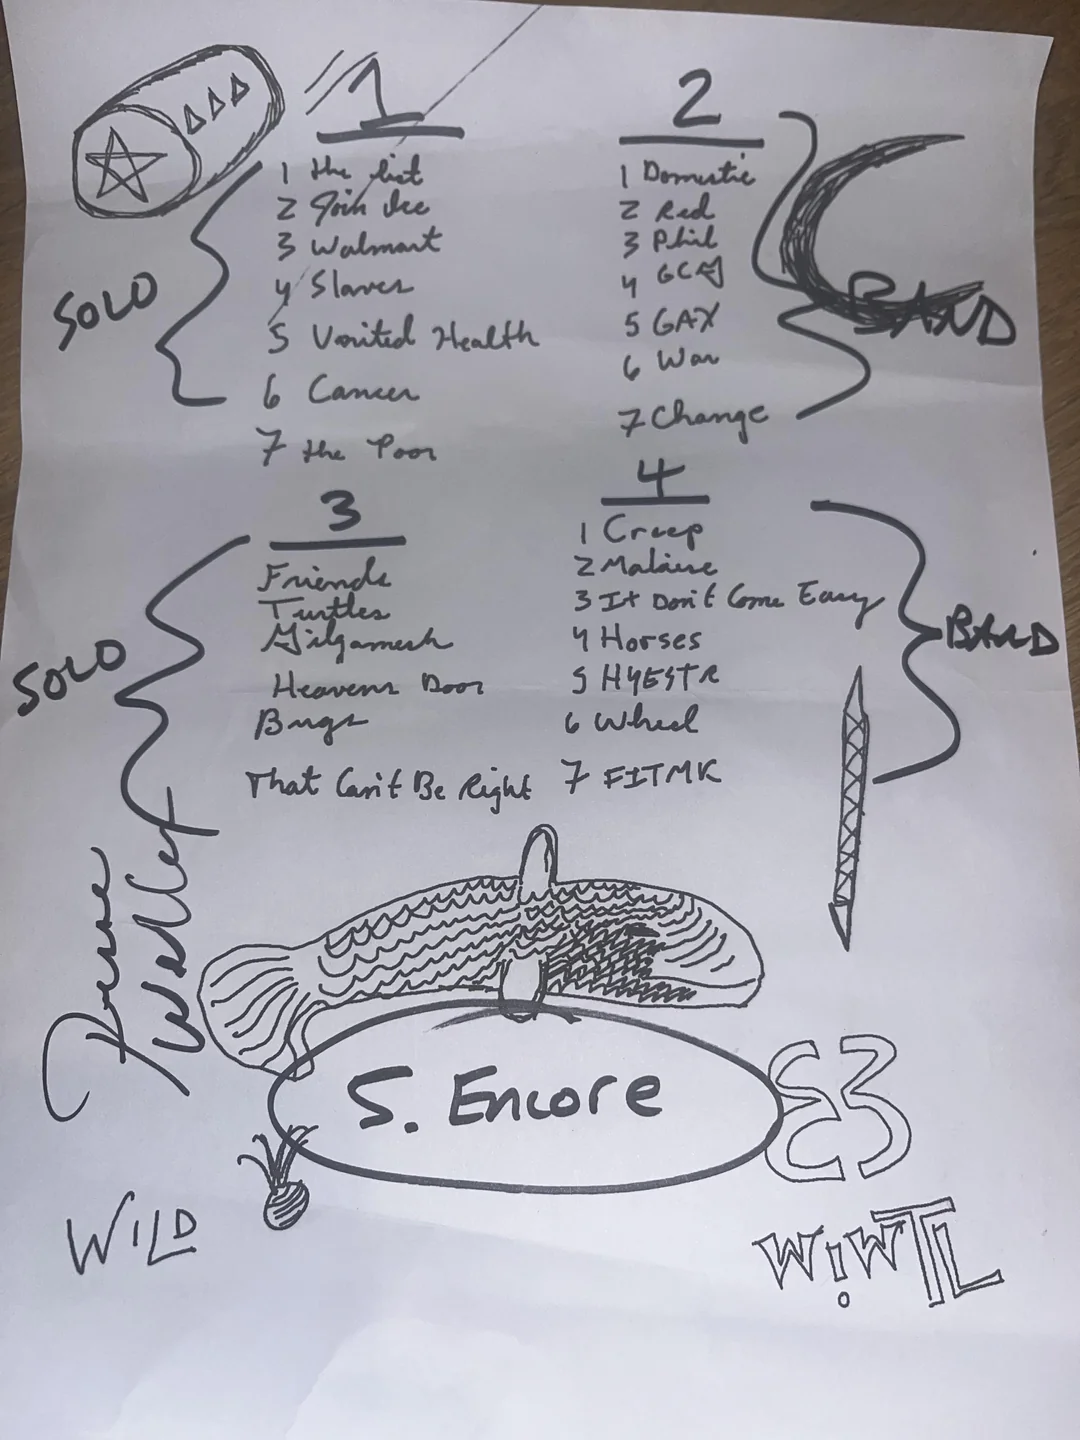 1
1 the list
2 Join Ice
3 Walmart
4 Slaves
5 United Health
6 Cancer
7 the Poor
SOLO
2
1 Domestic
2 Red
3 Phil
4 GC
5 GAX
6 War
7 Change
BAND
3
Friends
Turtles
Gilgamesh
Heavens Door
Bugs
That Can't Be Right
SOLO
4
1 Creep
2 Malaise
3 It Don't Come Easy
4 Horses
5 HYESTR
6 Wheel
7 FITMK
BAND
Welles
5. Encore
WILD
W!WTL